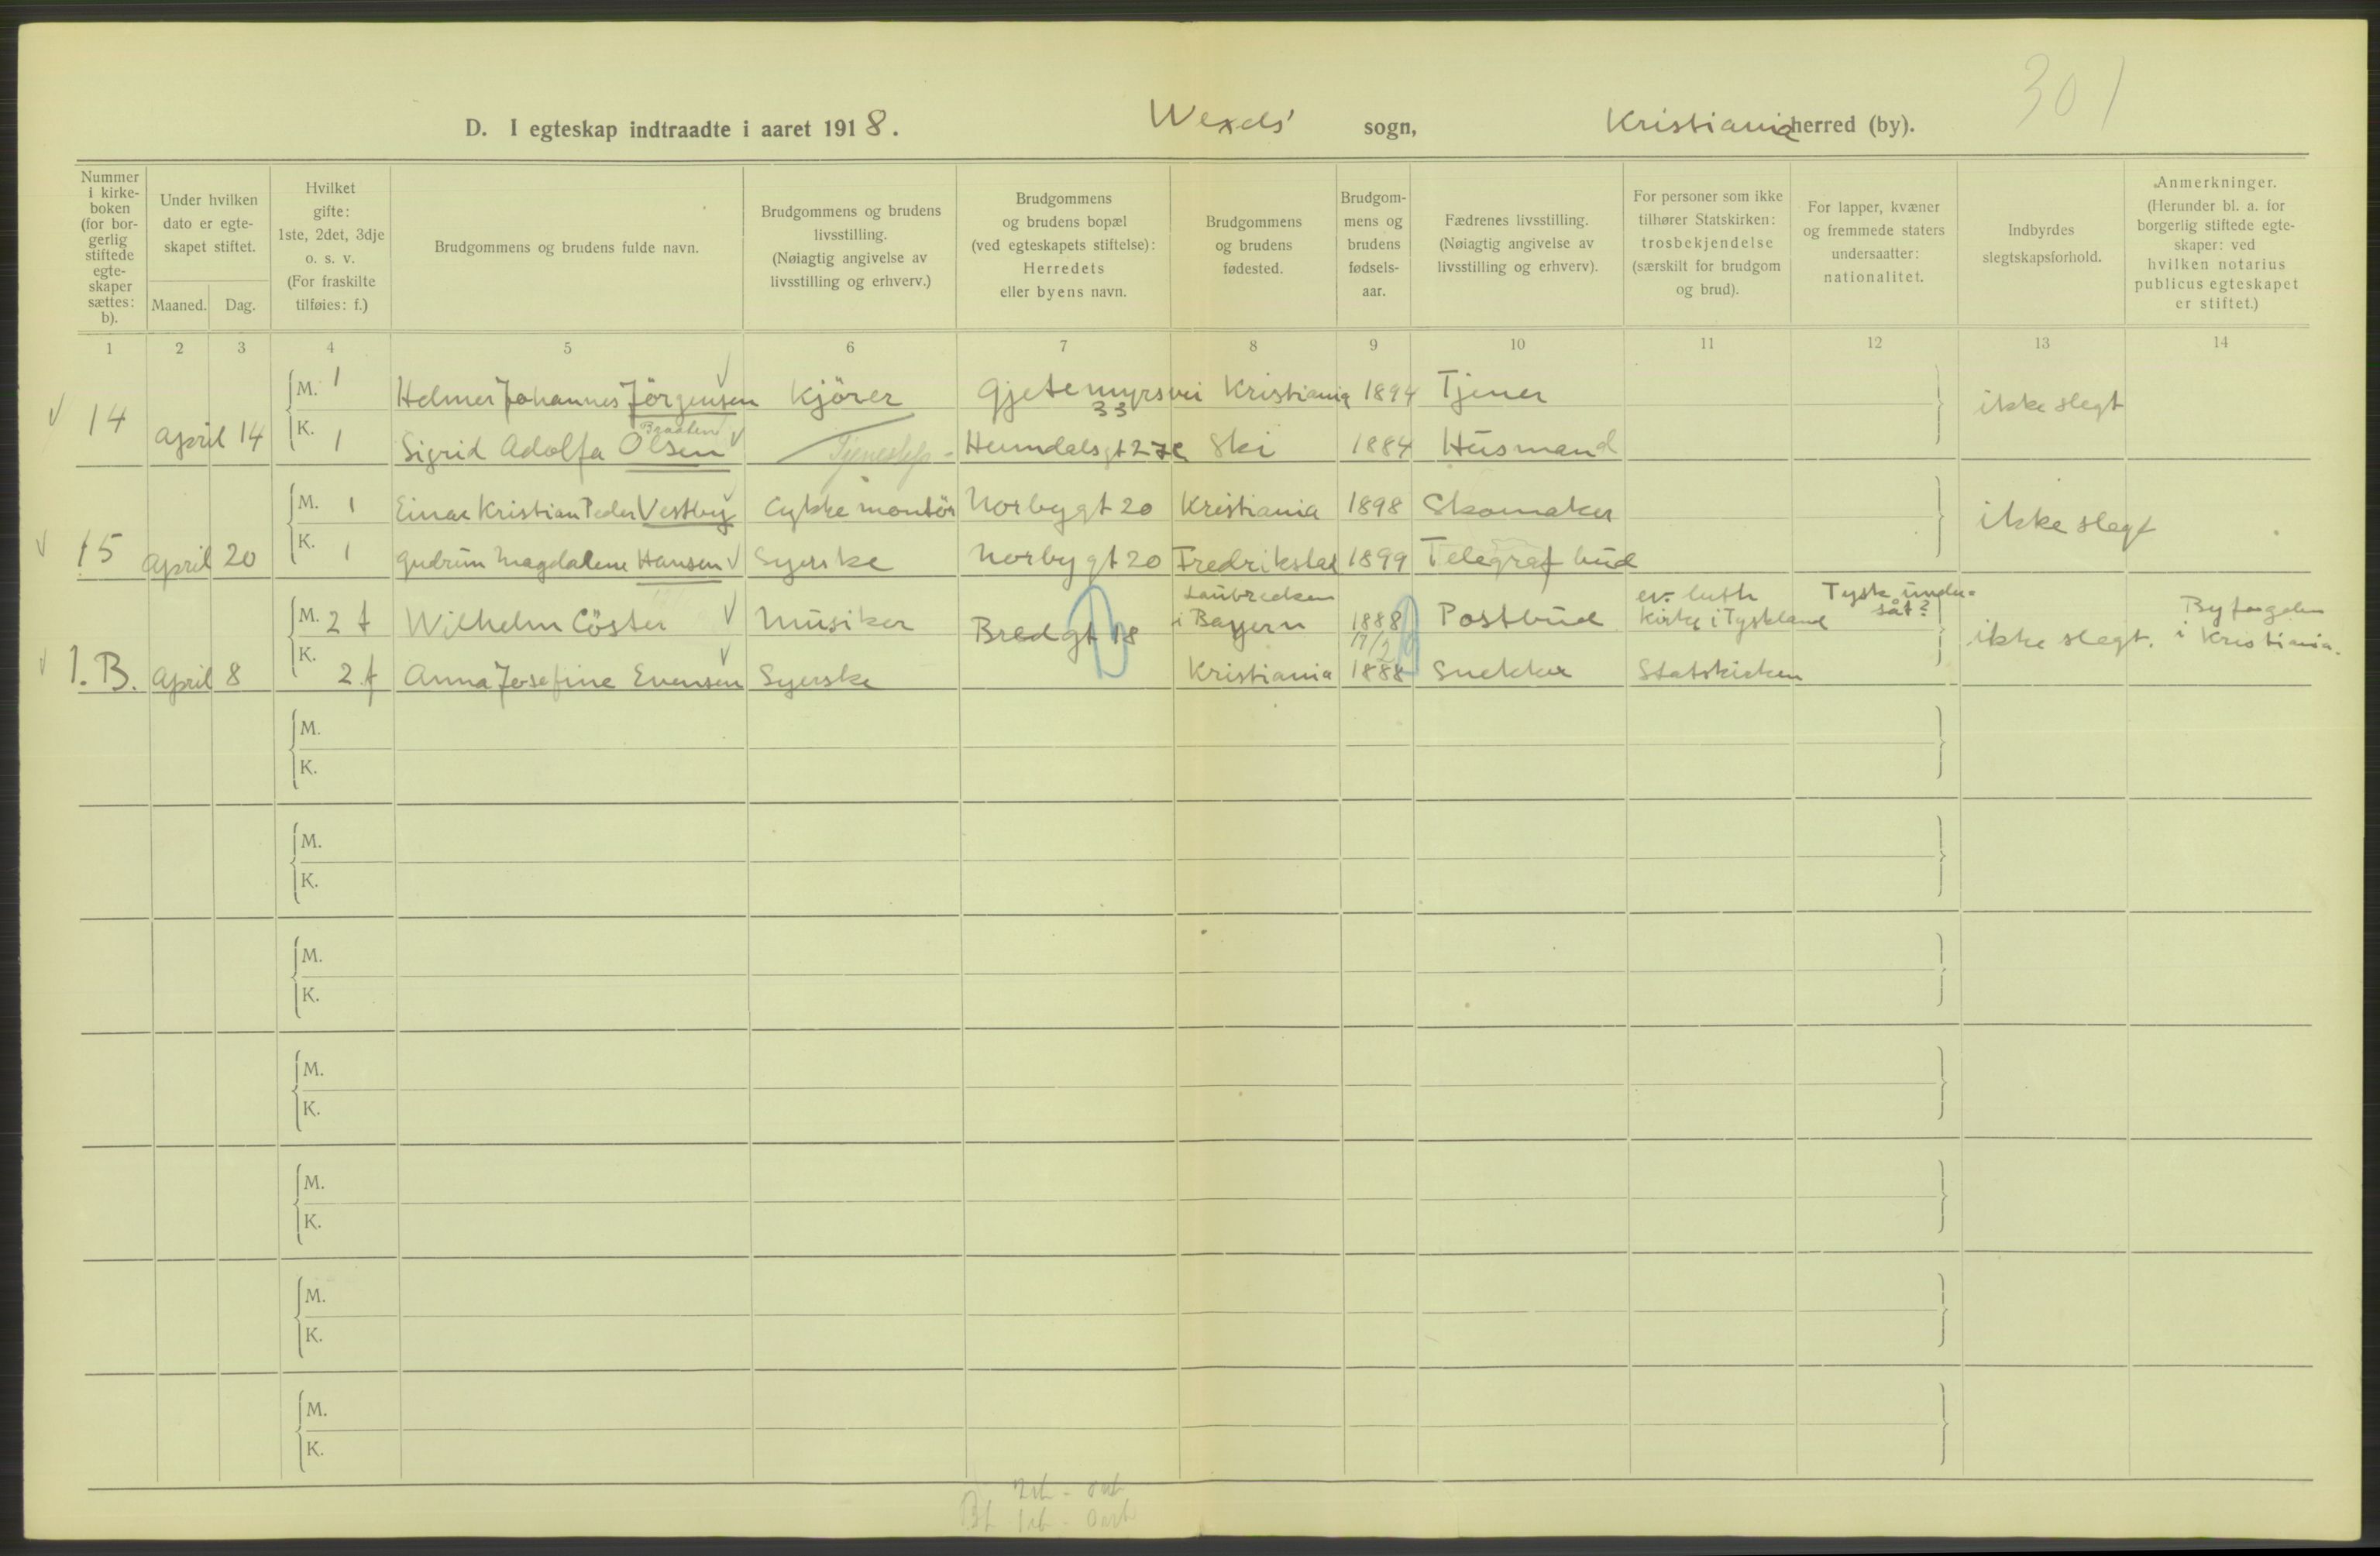 301
D. I egteskap indtraadte i aaret 1918. Wexels' sogn, Kristiania herred (by).
Nummer i kirke-boken (for bor-gerlig stiftede egte-skaper sættes: b).
Under hvilken dato er egte-skapet stiftet.
Maaned. Dag.
Hvilket gifte: 1ste, 2det, 3dje o. s. v. (For fraskilte tilføies: f.)
Brudgommens og brudens fulde navn.
Brudgommens og brudens livsstilling. (Nøiagtig angivelse av livsstilling og erhverv.)
Brudgommens og brudens bopæl (ved egteskapets stiftelse): Herredets eller byens navn.
Brudgommens og brudens fødested.
Brudgom-mens og brudens fødsels-aar.
Fædrenes livsstilling. (Nøiagtig angivelse av livsstilling og erhverv).
For personer som ikke tilhører Statskirken: trosbekjendelse (særskilt for brudgom og brud).
For lapper, kvæner og fremmede staters undersaatter: nationalitet.
Indbyrdes slegtskapsforhold.
Anmerkninger. (Herunder bl. a. for borgerlig stiftede egte-skaper: ved hvilken notarius publicus egteskapet er stiftet.)
1 2 3 4 5 6 7 8 9 10 11 12 13 14
M. 1 Helmer Johannes Jörgensen Kjörer Gjetemyrsvei 33 Kristiania 1894 Tjener
14 April 14 ikke slegt
K. 1 Sigrid Adolfa Braaten Olsen Heimdalsgt 27c Ski 1884 Husmand
M. 1 Einar Kristian Peder Vestby Cykkemontör Norbygt 20 Kristiania 1898 Skomaker
15 April 20 ikke slegt
K. 1 Gudrun Magdalene Hansen Syerske Norbygt 20 Fredrikstad 1899 Telegrafbud
M. 2 f Wilhelm Cöster Musiker Bredgt 18 i Bayern 1888 Postbud ev. luth Kirke i Tyskland Tysk undersåt?
1.B. April 8 17/2 ikke slegt. Byfogden i Kristiania.
K. 2 f Anna Josefine Evensen Syerske Kristiania 1888 Snekker Statskirken
M.
K.
M.
K.
M.
K.
M.
K.
M.
K.
M.
K.
M.
K.